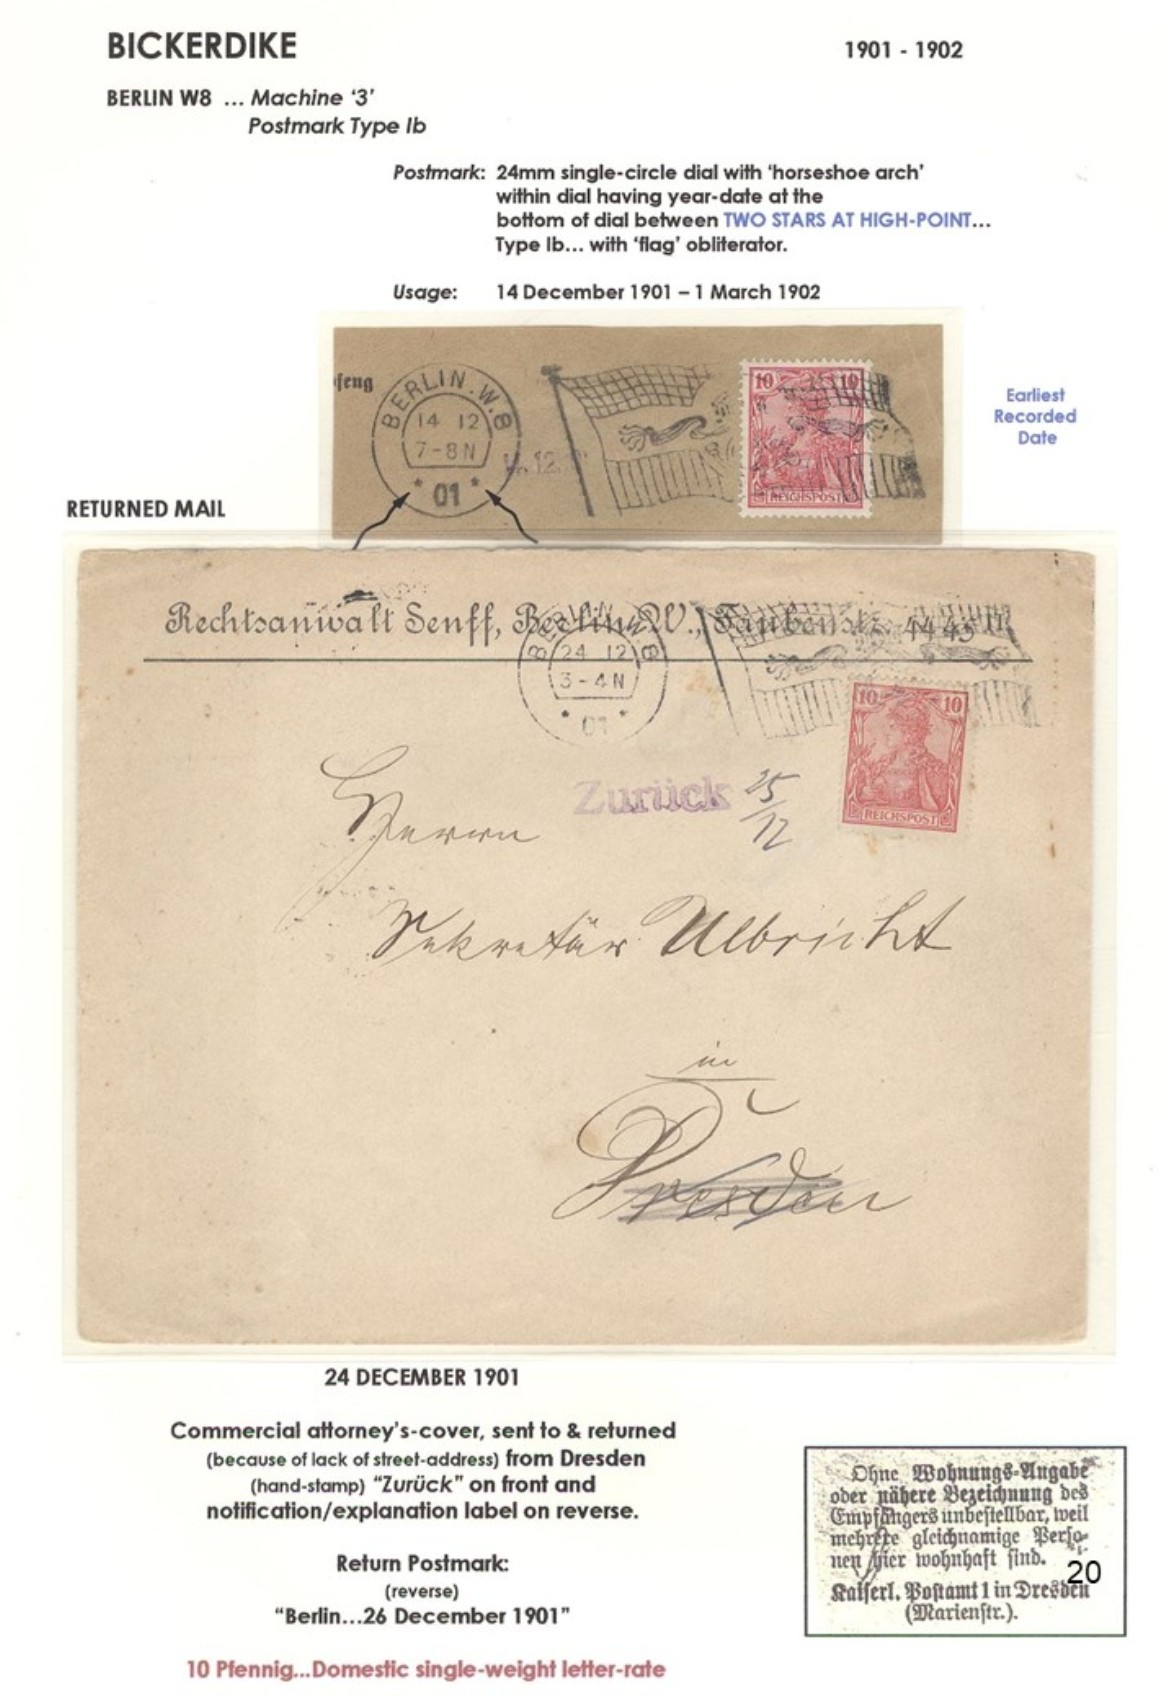 BICKERDIKE
1901 - 1902
BERLIN W8 ... Machine ‘3’
Postmark Type Ib
Postmark: 24mm single-circle dial with ‘horseshoe arch’
within dial having year-date at the
bottom of dial between TWO STARS AT HIGH-POINT...
Type Ib... with ‘flag’ obliterator.
Usage: 14 December 1901 – 1 March 1902
BERLIN.W.8
14 12
7-8N
* 01 *
10 10
REICHSPOST
Earliest
Recorded
Date
RETURNED MAIL
Rechtsanwalt Senff, Berlin W., Taubenstr. 44/45 II
BERLIN.W.8
24 12
3-4N
* 01 *
10 10
REICHSPOST
Zurück 25/12
Herrn
Sekretär Ulbricht
in
Dresden
24 DECEMBER 1901
Commercial attorney’s-cover, sent to & returned
(because of lack of street-address) from Dresden
(hand-stamp) “Zurück” on front and
notification/explanation label on reverse.
Return Postmark:
(reverse)
“Berlin...26 December 1901”
10 Pfennig...Domestic single-weight letter-rate
Ohne Wohnungs-Angabe
oder nähere Bezeichnung des
Empfängers unbestellbar, weil
mehrere gleichnamige Perso-
nen hier wohnhaft sind.
20
Kaiserl. Postamt 1 in Dresden
(Marienstr.).